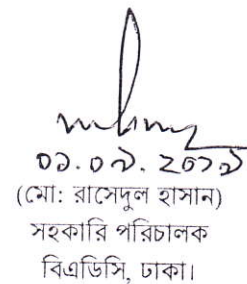 ০১.০৯.২০১৯
(মো: রাসেদুল হাসান)
সহকারি পরিচালক
বিএডিসি, ঢাকা।